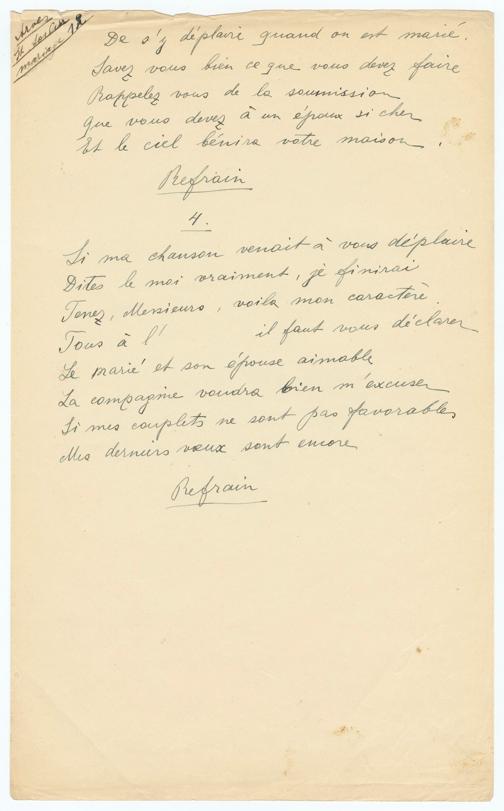 mariage 12
De s'y déplaire quand on est marié.
Savez vous bien ce que vous devez faire
Rappelez vous de la soumission
que vous devez à un époux si cher
Et le ciel bénira votre maison.
Refrain
4.
Si ma chanson venait à vous déplaire
Dites le moi vraiment, je finirai
Tenez, Messieurs, voila mon caractère.
Tous à l' il faut vous déclarer
Le marié et son épouse aimable
La compagnie voudra bien m'excuser
Si mes couplets ne sont pas favorables
Mes derniers vœux sont encore
Refrain